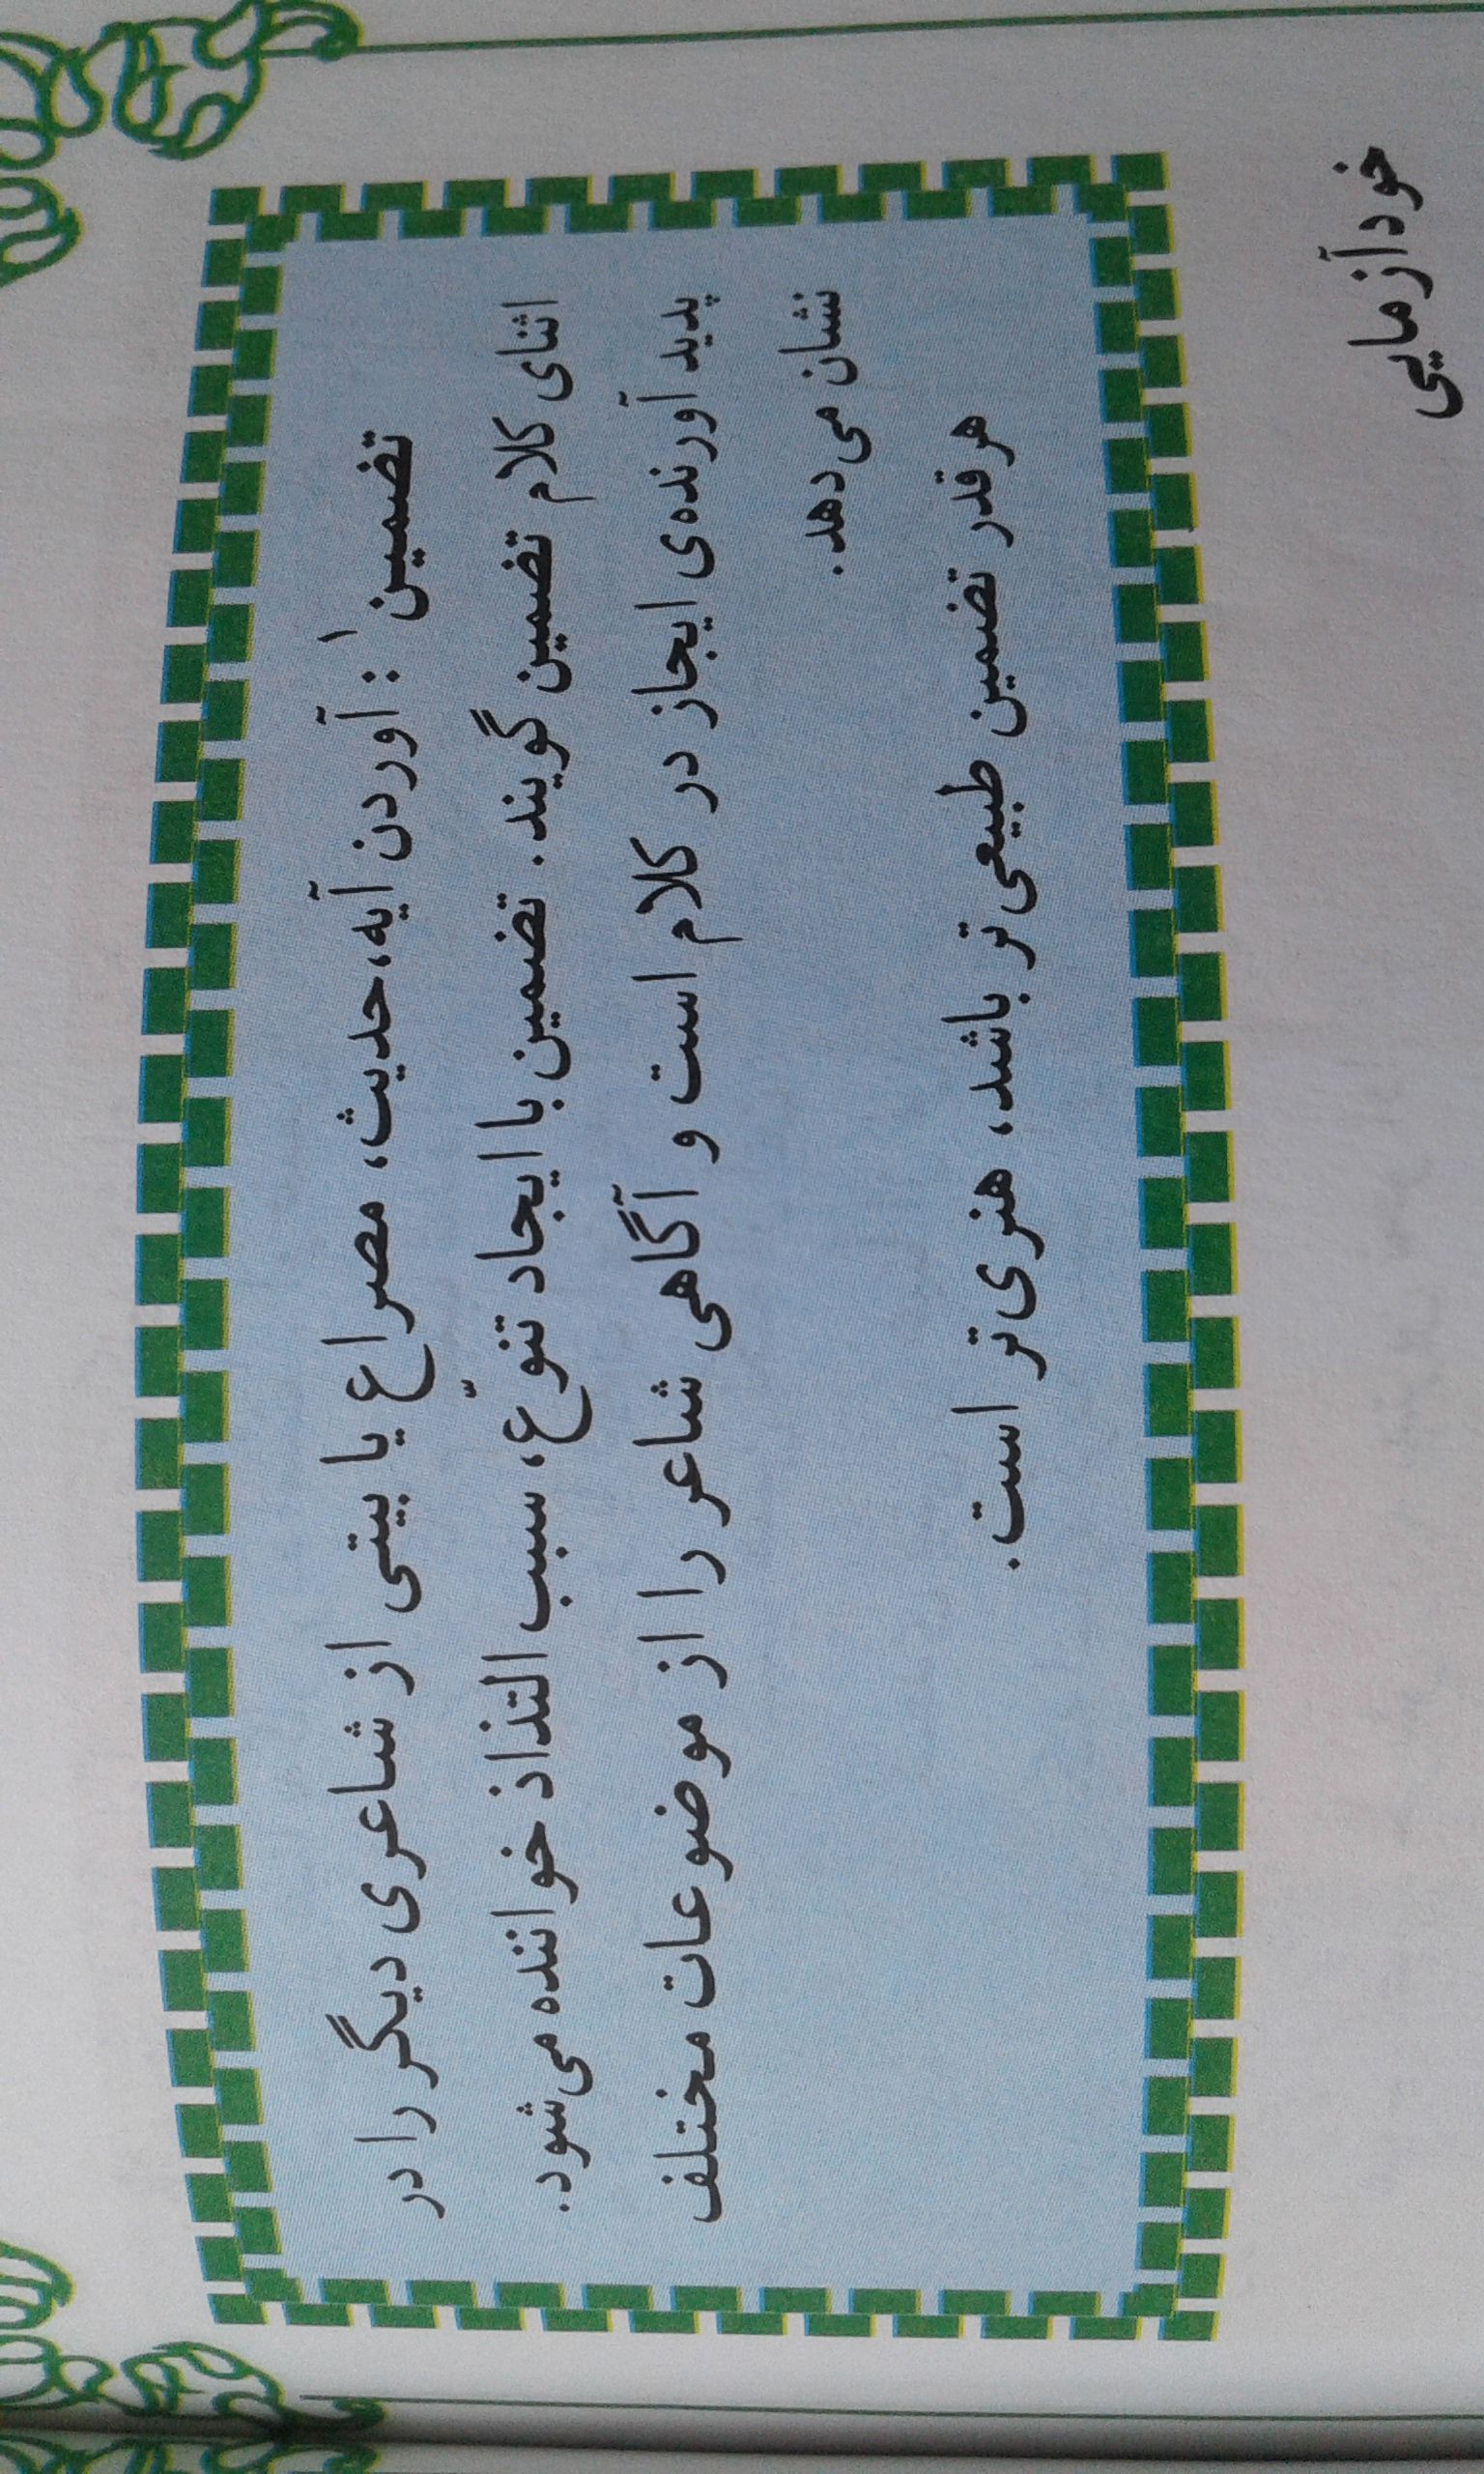 تضمین۱ : آوردن آیه، حدیث، مصراع یا بیتی از شاعری دیگر را در
اثنای کلام تضمین گویند. تضمین با ایجاد تنوّع، سبب التذاذ خواننده می‌شود.
پدید آورنده‌ی ایجاز در کلام است و آگاهی شاعر را از موضوعات مختلف
نشان می‌دهد.
هر قدر تضمین طبیعی‌تر باشد، هنری‌تر است.
خودآزمایی